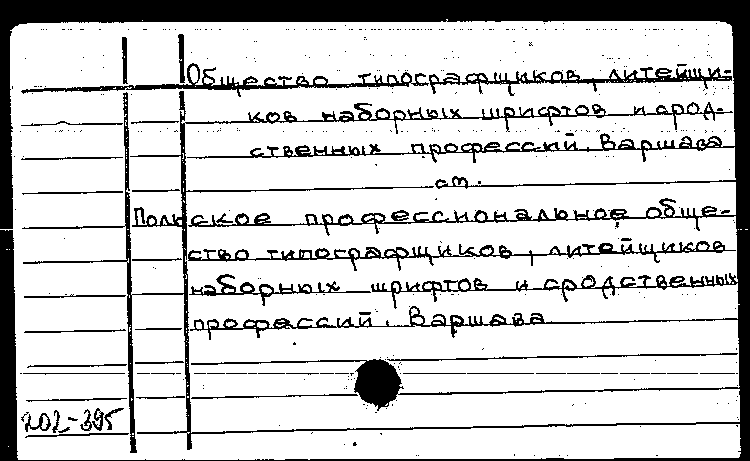 Общество типографщиков, литейщи-
ков наборных шрифтов и срод-
ственных профессий. Варшава
см.
Польское профессиональное обще-
ство типографщиков, литейщиков
наборных шрифтов и сродственных
профессий. Варшава
202-395